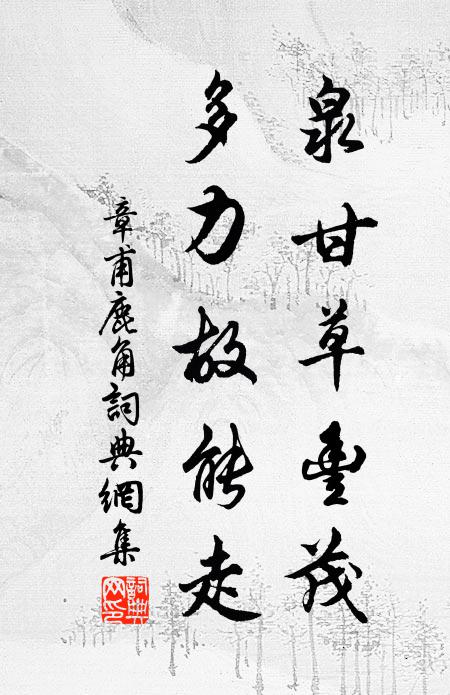 泉甘草豐茂
多力故能走
章甫鹿角詞典網集
詞典網印